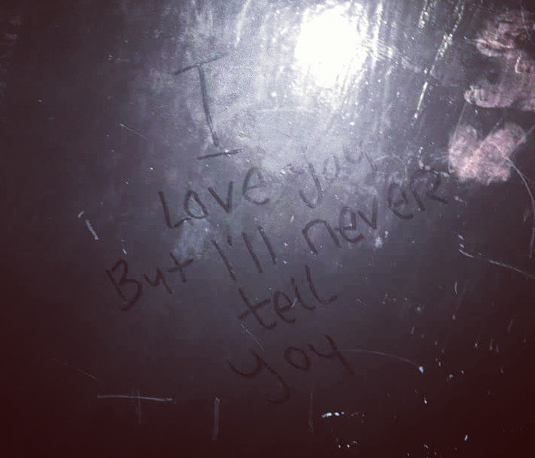 I
Love you
But I'll never
tell
you